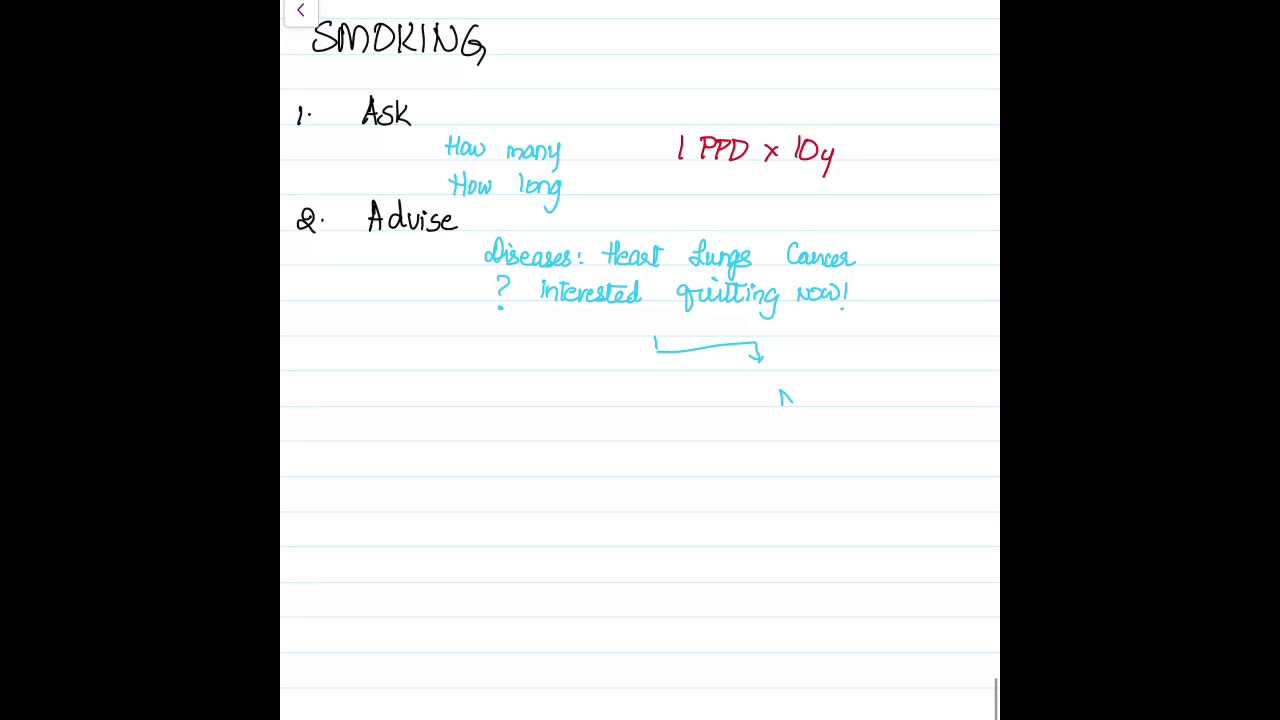 SMOKING
1. Ask
How many 1 PPD × 10y
How long
2. Advise
Diseases: Heart Lungs Cancer
? interested quitting now!